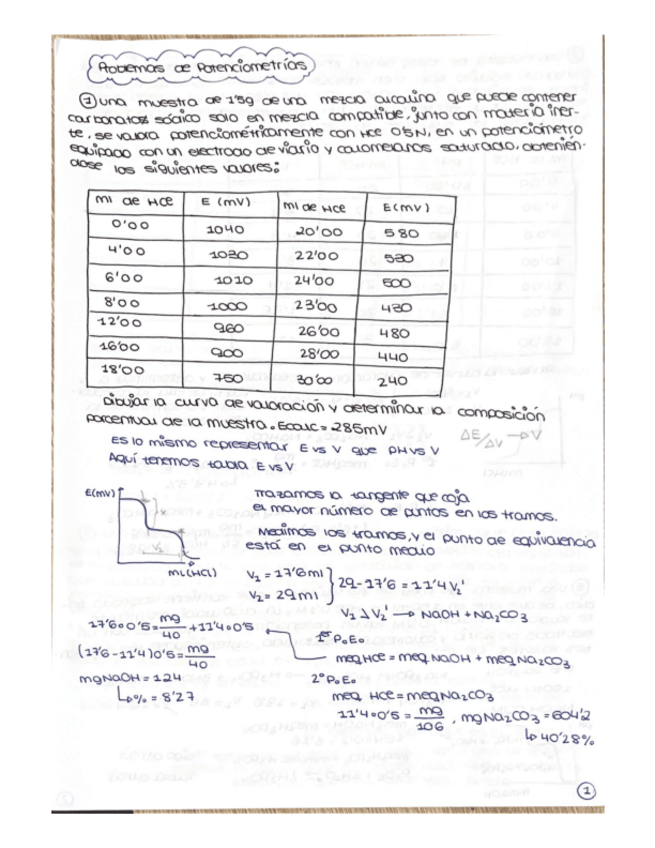 Problemas de Potenciometrías
① una muestra de 1'5g de una mezcla alcalina que puede contener
carbonatos sódico solo en mezcla compatible, junto con materia iner-
te, se valora potenciométricamente con HCe 0'5N, en un potenciómetro
equipado con un electrodo de vidrio y calomelanos saturado, obtenién-
dose los siguientes valores:
ml de HCe E (mV) ml de HCe E(mV)
0'00 1040 20'00 580
4'00 1030 22'00 530
6'00 1010 24'00 500
8'00 1000 23'00 430
12'00 960 26'00 480
16'00 900 28'00 440
18'00 750 30'00 240
dibujar la curva de valoración y determinar la composición
porcentual de la muestra. Ecalc = 285mV
Es lo mismo representar E vs V que pH vs V
Aquí tenemos tabla E vs V
ΔE/ΔV → V
E(mV)
x
V₁
ml(HCl)
Trazamos la tangente que coja
el mayor número de puntos en los tramos.
Medimos los tramos, y el punto de equivalencia
está en el punto medio
V₁ = 17'6ml
V₂ = 29ml
29-17'6 = 11'4 V₂'
V₁ > V₂' → NaOH + Na₂CO₃
17'6·0'5 = mg/40 + 11'4·0'5
(17'6-11'4)0'5 = mg/40
mgNaOH = 124
↳% = 8'27
1º P.E.
meqHCe = meqNaOH + meqNa₂CO₃
2º P.E.
meq HCe = meqNa₂CO₃
11'4·0'5 = mg/106, mgNa₂CO₃ = 604'2
↳ 40'28%
1